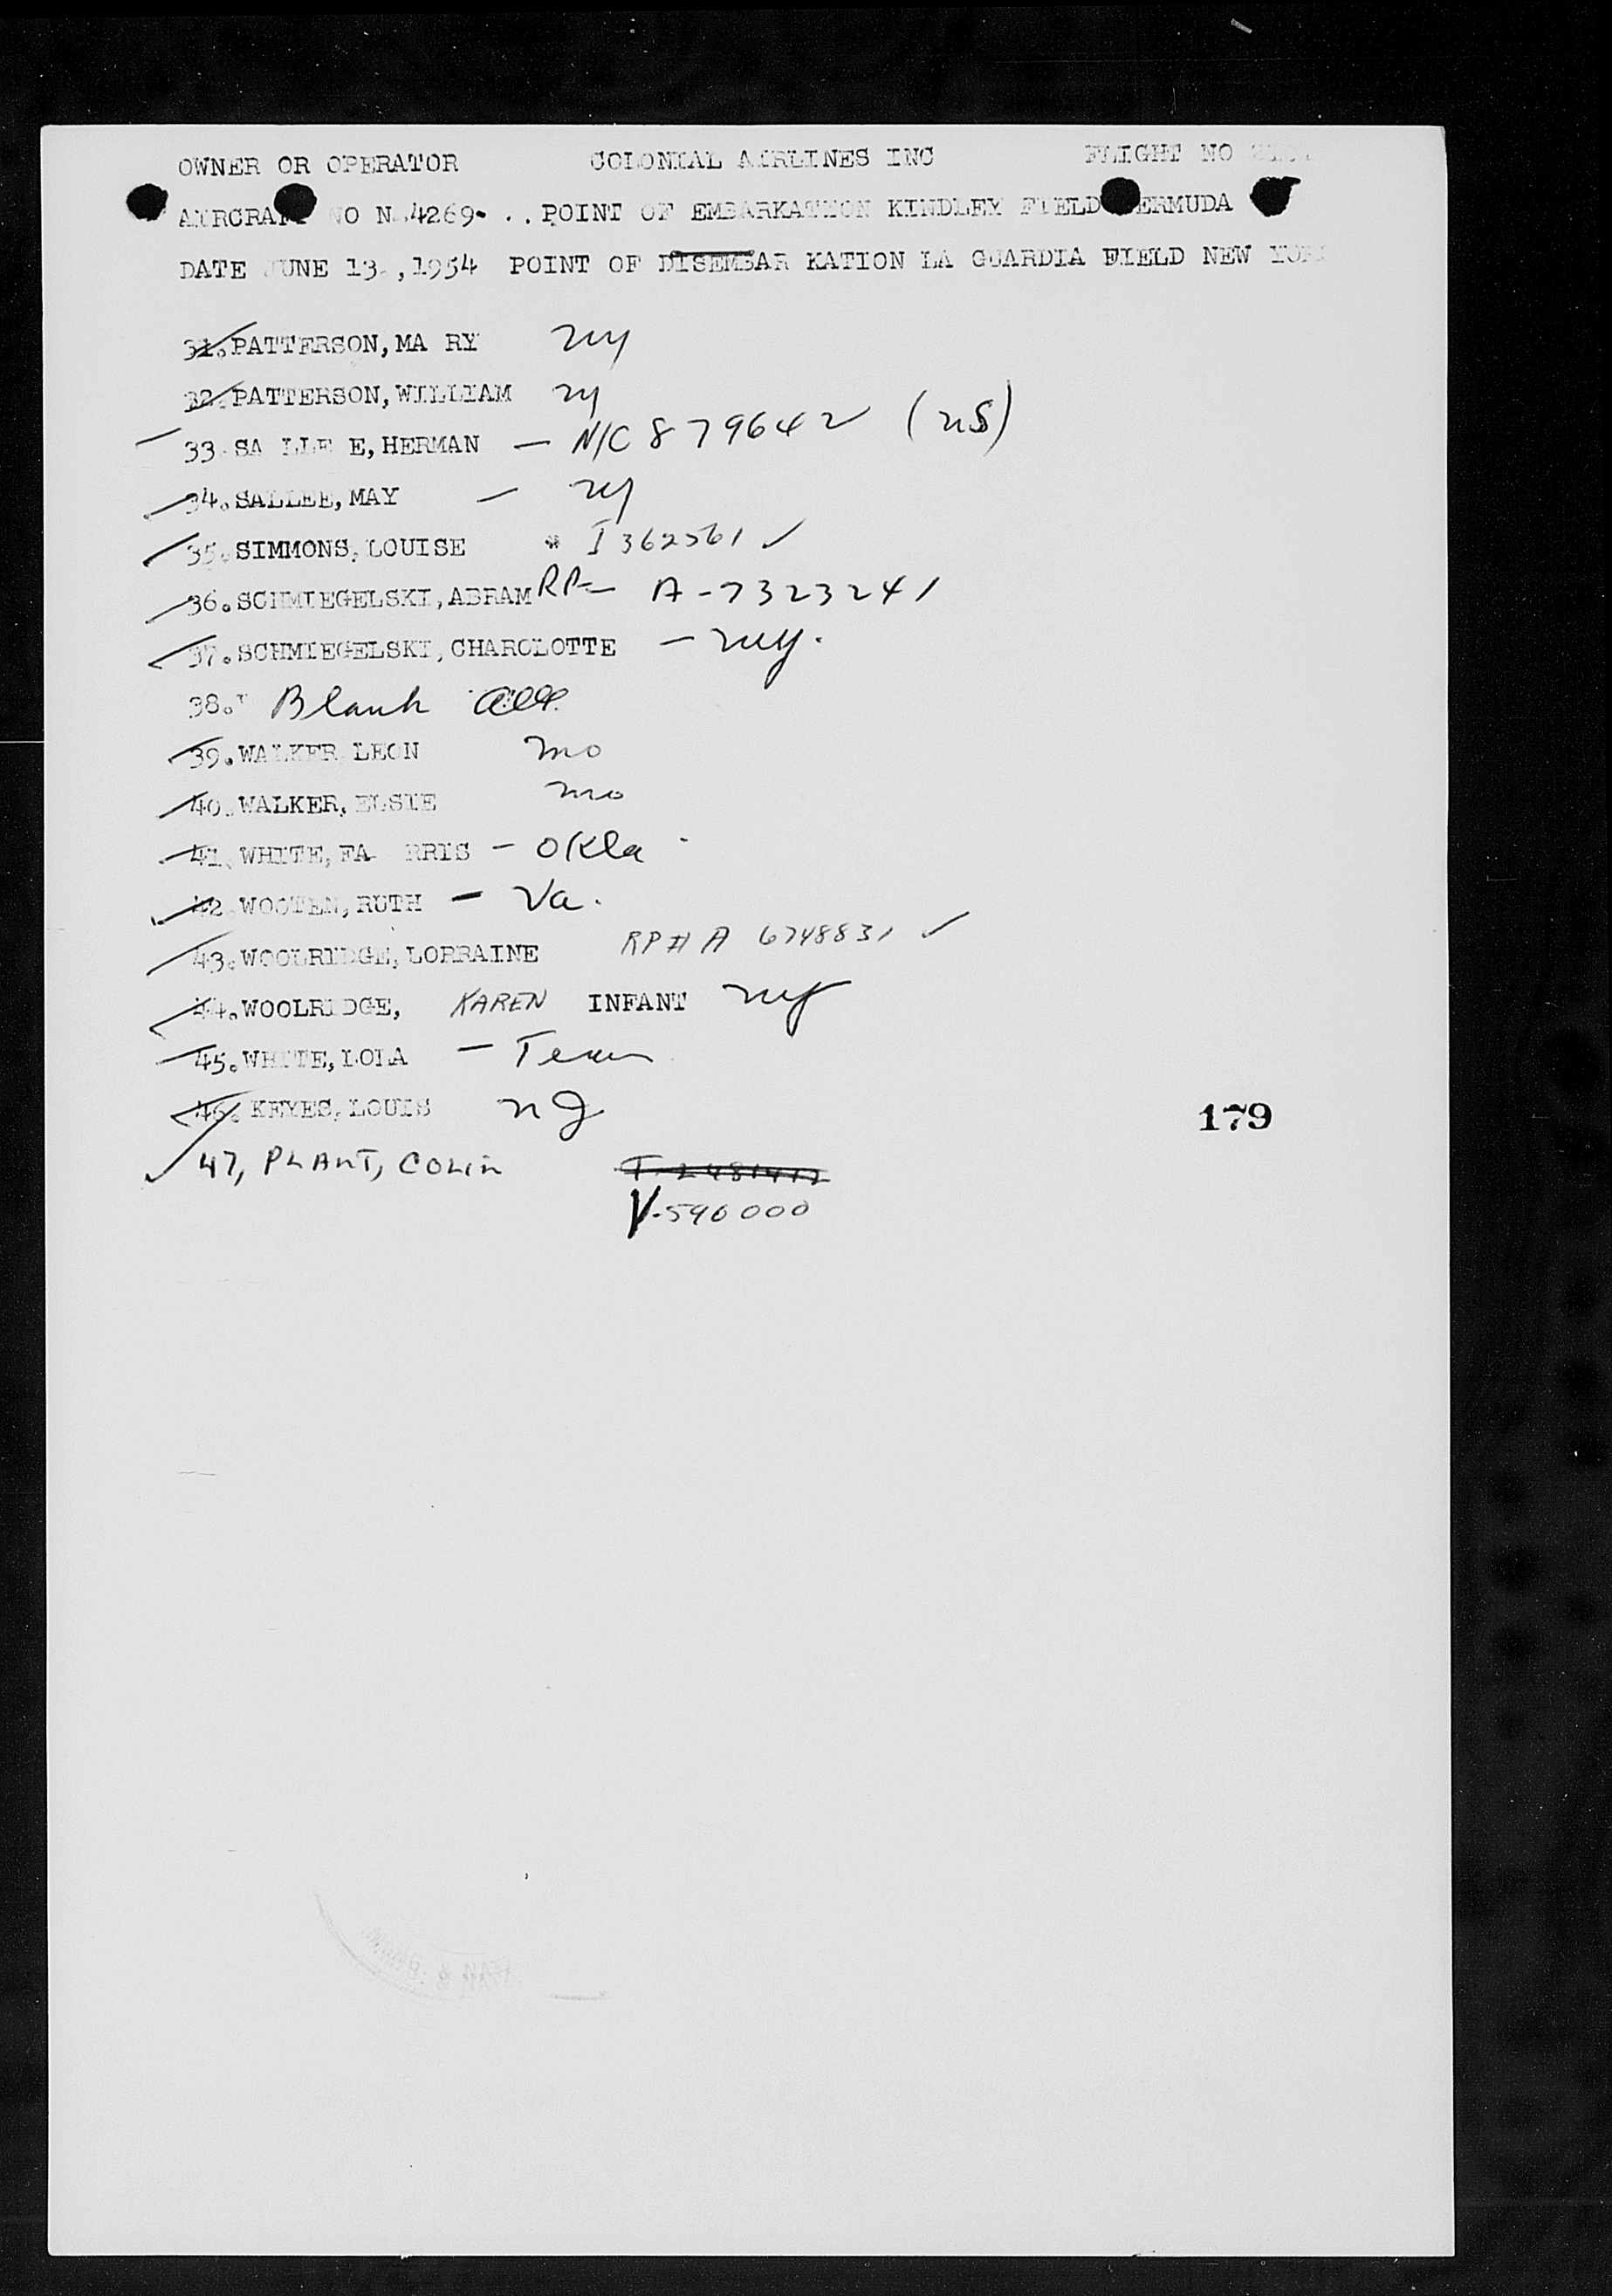 OWNER OR OPERATOR COLONIAL AIRLINES INC FLIGHT NO
AIRCRAFT NO N.4269. .. POINT OF EMBARKATION KINDLEY FIELD BERMUDA
DATE JUNE 13.,1954 POINT OF DISEMBAR KATION LA GUARDIA FIELD NEW YORK
31.PATTERSON,MA RY ny
32.PATTERSON,WILLIAM ny
33.SA LLE E,HERMAN — N/C 879642 (US)
34.SALLEE,MAY — ny
35.SIMMONS,LOUISE * I 362561 ✓
36.SCHMIEGELSKI,ABRAM RP- A-7323241
37.SCHMIEGELSKI,CHAROLOTTE — ny.
38. Blank
39.WALKER LEON mo
40.WALKER,ELSIE mo
41.WHITE,FA RRIS — Okla
42.WOOTEN,RUTH — Va.
43.WOOLRIDGE,LORRAINE RP# A 6748831 ✓
44.WOOLRIDGE, KAREN INFANT ny
45.WHITE,LOLA — Tenn
46. KEYES,LOUIS nJ
179
47, PLANT, COLIN T-2481412
V-596000